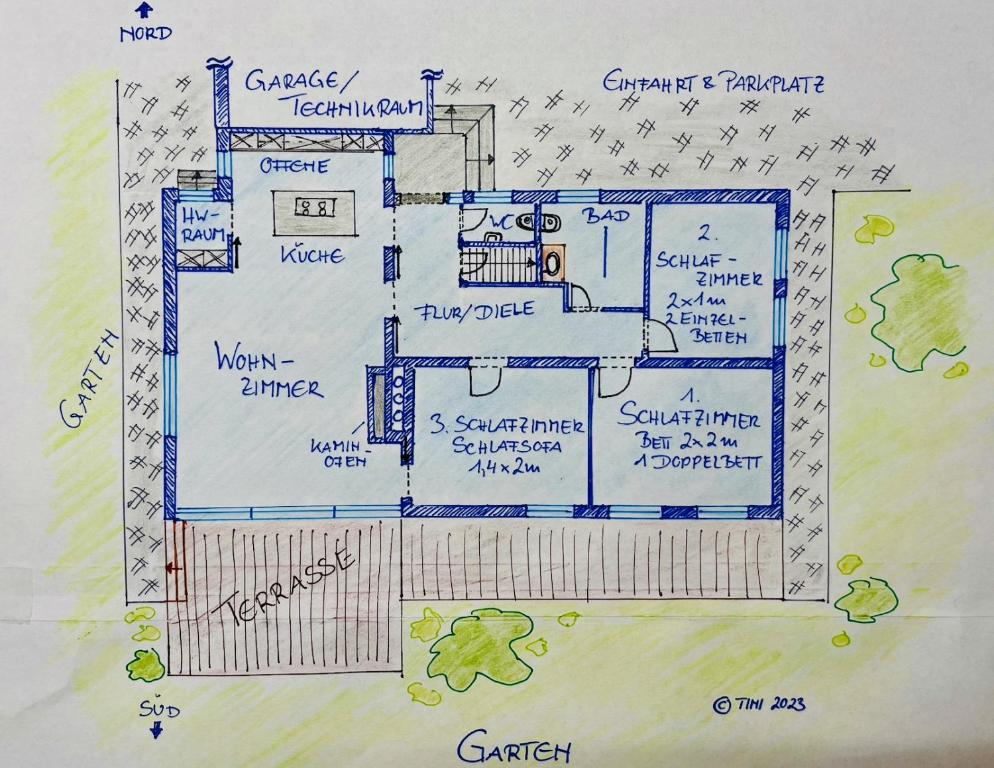 NORD
GARAGE/
TECHNIKRAUM
EINFAHRT & PARKPLATZ
OFFENE
KÜCHE
HW-
RAUM
WC
BAD
2.
SCHLAF-
ZIMMER
2x1m
2 EINZEL-
BETTEN
FLUR/DIELE
WOHN-
ZIMMER
GARTEN
KAMIN-
OFEN
3. SCHLAFZIMMER
SCHLAFSOFA
1,4x2m
1.
SCHLAFZIMMER
BETT 2x2m
1 DOPPELBETT
TERRASSE
SÜD
© TINI 2023
GARTEN